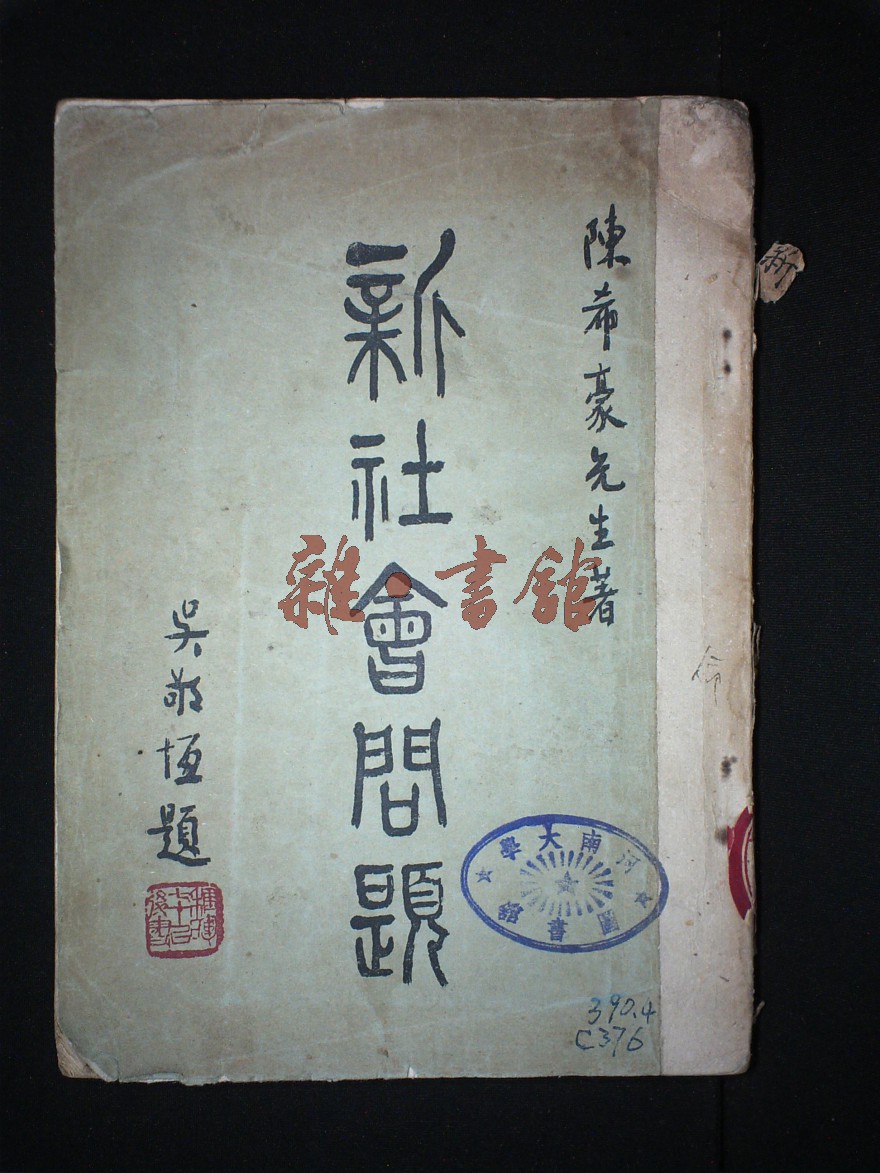 陳希豪先生著
新社會問題
吳敬恆題
雜·書館
河南大學
圖書館
390.4
C376